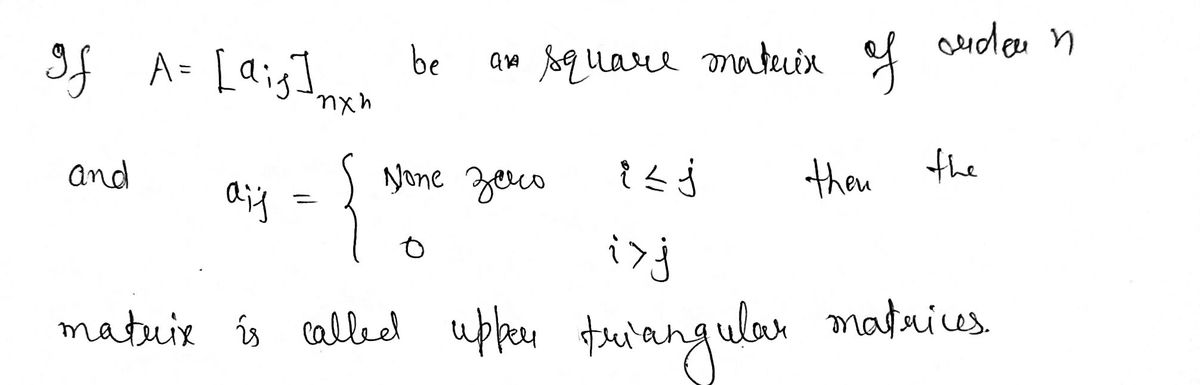 If A = [aij]n×n be an square matrix of order n
and aij = { None zero i ≤ j then the
0 i > j
matrix is called upper triangular matrices.